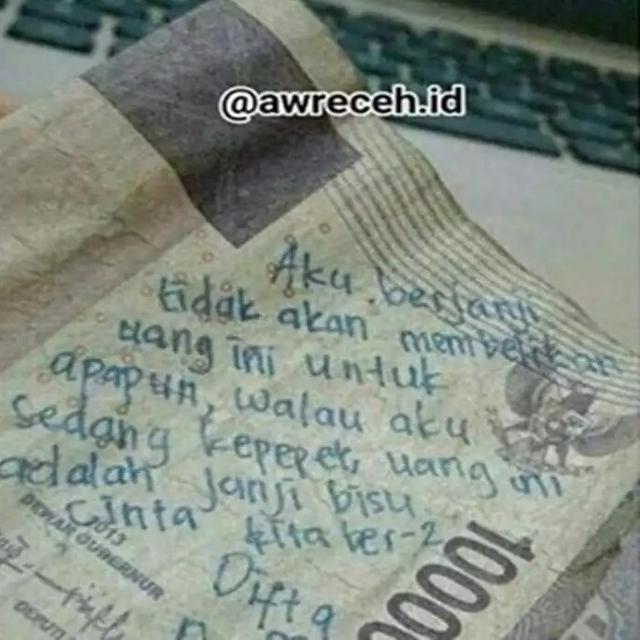 @awreceh.id
Aku berjanji
tidak akan membelikan
uang ini untuk
apapun, walau aku
sedang kepepet, uang ini
adalah janji bisu
cinta kita ber-2
Difta
2013
DEWAN GUBERNUR
10000